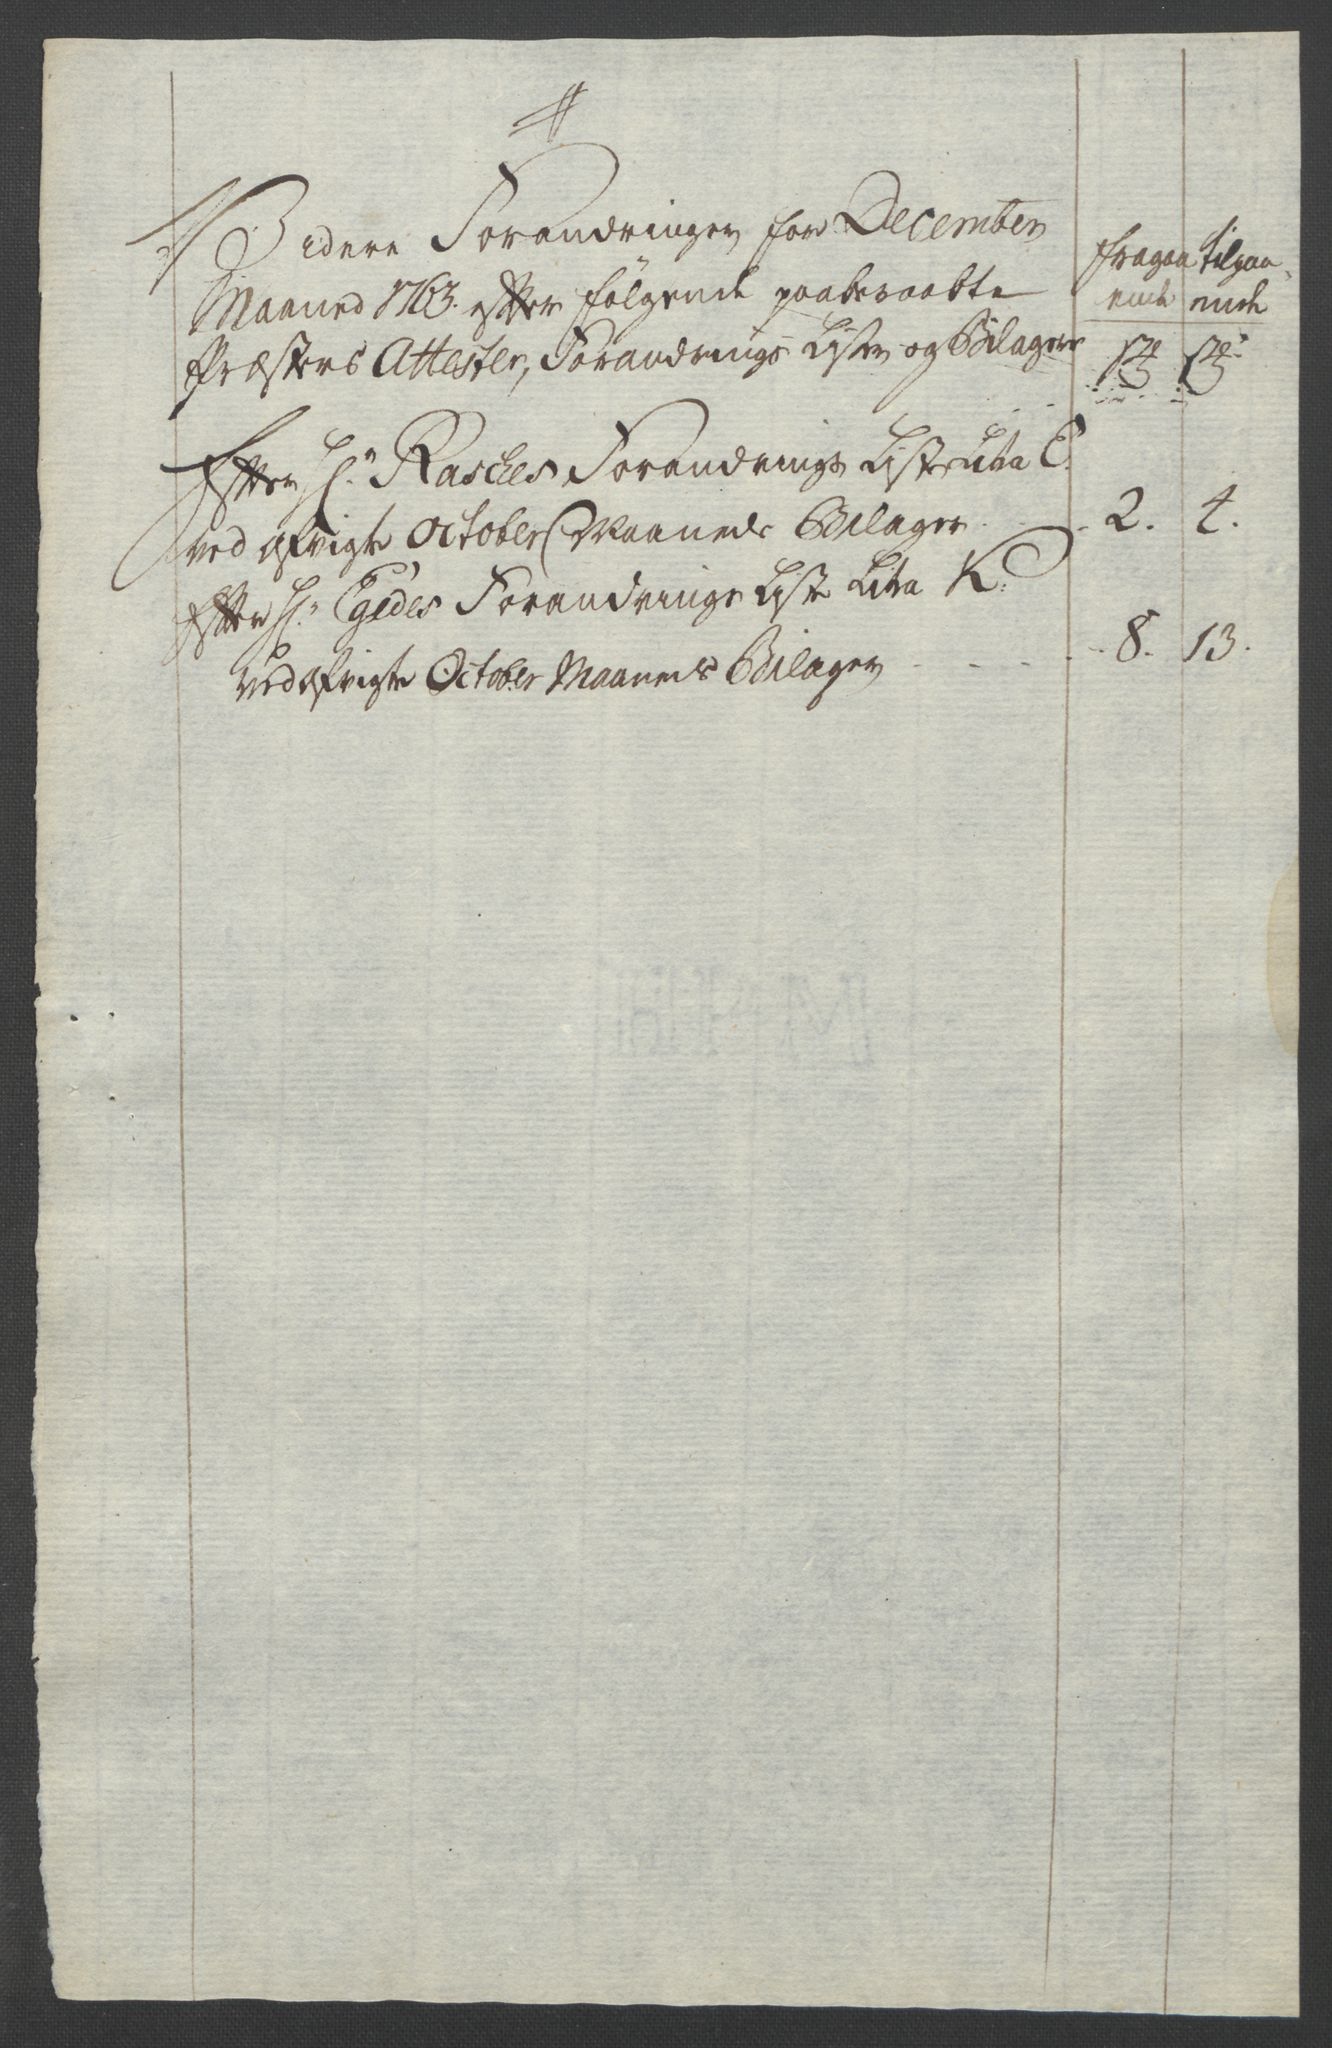 Videre Forandringer for December
Maaned 1763. efter følgende paaberaabte
Præsters Attester, Forandrings Lister og Bilager
fragaa tilgaa-
ende ende
Efter Hr. Rasches Forandrings Liste Litra C.
ved afvigte October Maaneds Bilager . . 2. 4.
Efter Hr. Egedes Forandrings Liste Litra K.
ved afvigte October Maaneds Bilager . . . . . 8. 13.